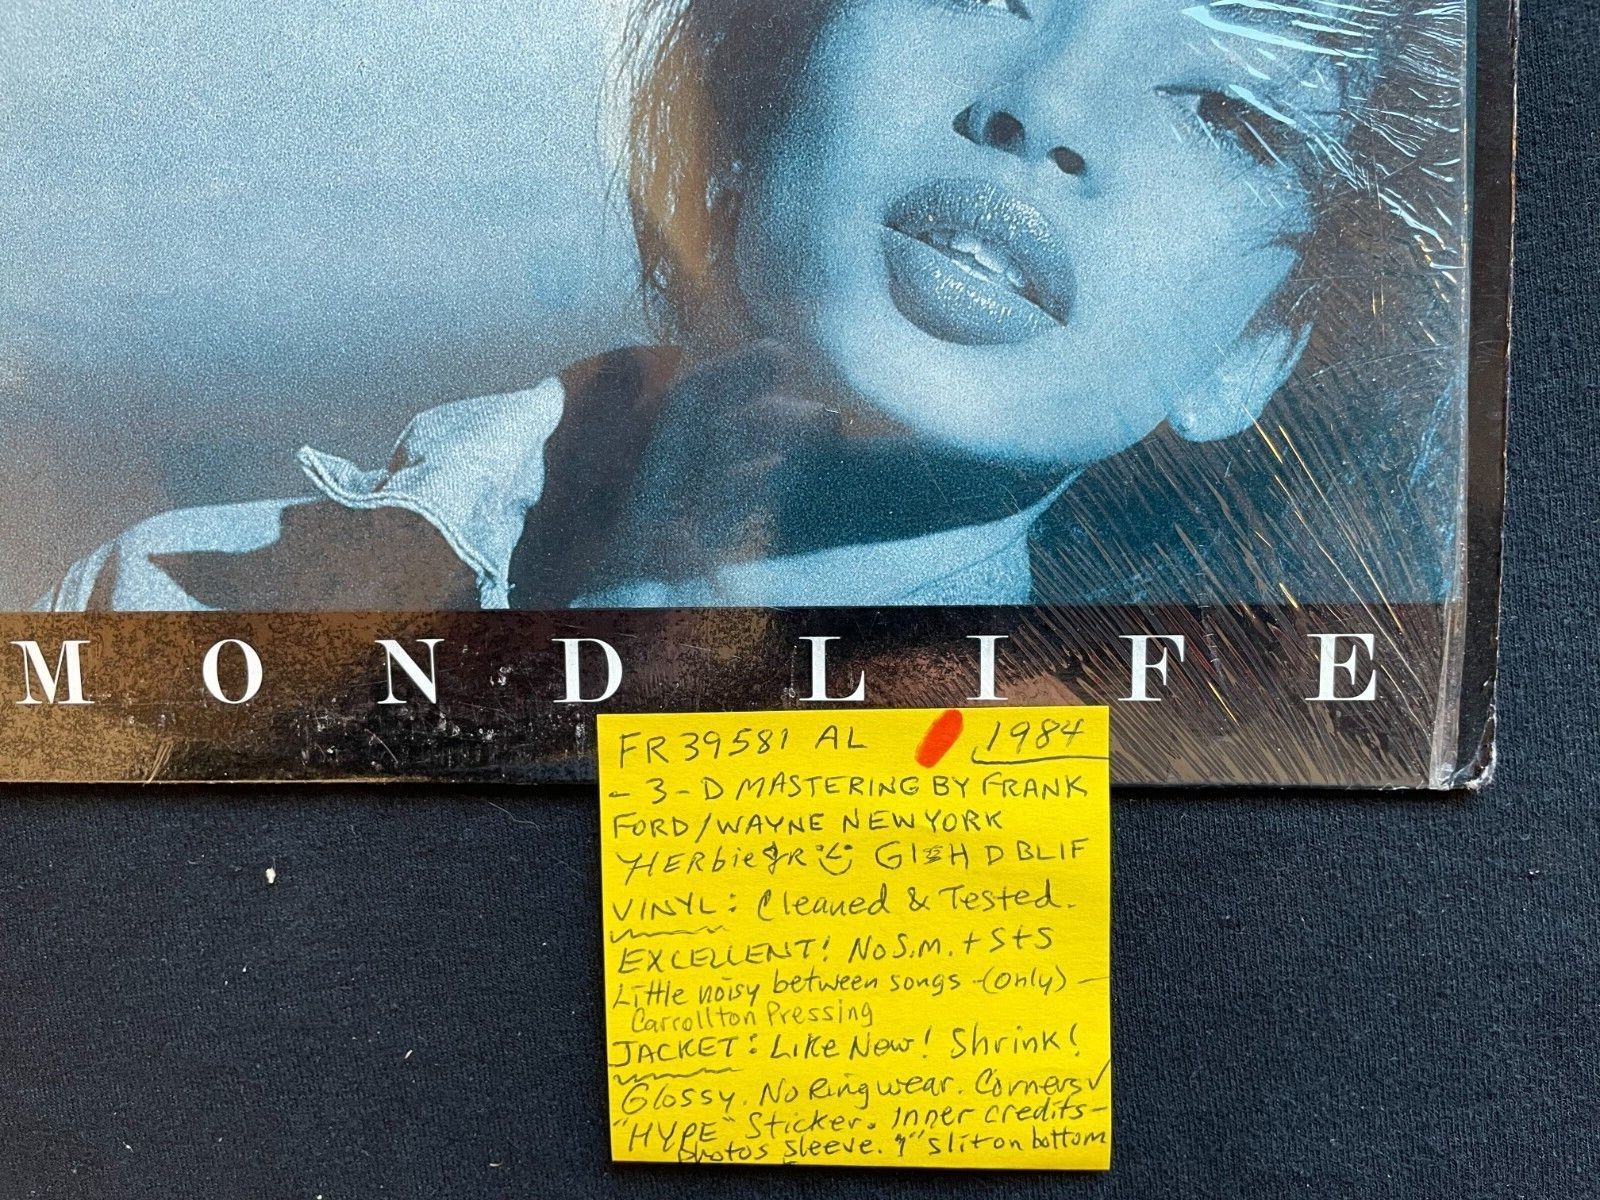 MOND LIFE
FR 39581 AL 1984
- 3-D MASTERING BY FRANK
FORD/WAYNE NEW YORK
HERbie JR G1 H D BLIF
VINYL: Cleaned & Tested.
EXCELLENT! No S.M. + S+S
Little noisy between songs -(only)-
Carrollton Pressing
JACKET: Like New! Shrink!
Glossy. No Ring wear. Corners ✓
"HYPE" Sticker. Inner credits-
photos sleeve. 1" slit on bottom